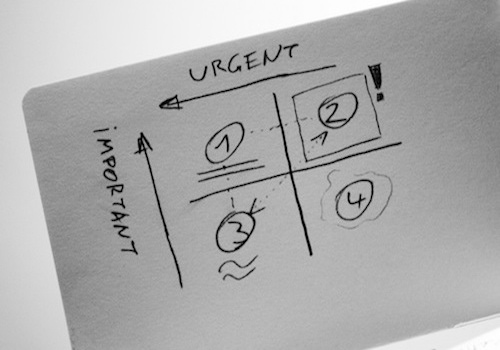 URGENT
iMPORTANT
1
2
!
3
4